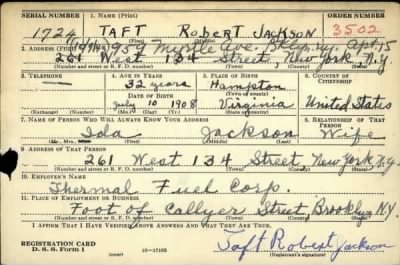 SERIAL NUMBER 1. NAME (Print) ORDER NUMBER
1724 TAFT Robert JACKSON 3502
(First) (Middle) (Last)
959 Myrtle Ave. Bklyn. N.Y. Apt. 15
2. ADDRESS (Print)
261 West 134 Street, New York, N.Y.
(Number and street or R. F. D. number) (Town) (County) (State)
3. TELEPHONE 4. AGE IN YEARS 5. PLACE OF BIRTH 6. COUNTRY OF CITIZENSHIP
32 years Hampton
DATE OF BIRTH (Town or county)
July 10 1908 Virginia United States
(Exchange) (Number) (Mo.) (Day) (Yr.) (State or country)
7. NAME OF PERSON WHO WILL ALWAYS KNOW YOUR ADDRESS 8. RELATIONSHIP OF THAT PERSON
Ida Jackson Wife
(Mr., Mrs., Miss) (First) (Middle) (Last)
9. ADDRESS OF THAT PERSON
261 West 134 Street, New York, N.Y.
(Number and street or R. F. D. number) (Town) (County) (State)
10. EMPLOYER'S NAME
Thermal Fuel Corp.
11. PLACE OF EMPLOYMENT OR BUSINESS
Foot of Callyer Street, Brooklyn, N.Y.
(Number and street or R. F. D. number) (Town) (County) (State)
I AFFIRM THAT I HAVE VERIFIED ABOVE ANSWERS AND THAT THEY ARE TRUE.
REGISTRATION CARD
D. S. S. Form 1 (over) 16—17105
Taft Robert Jackson
(Registrant's signature)